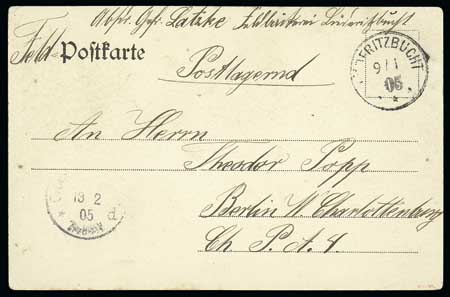 Absdr. Gefr. Latzke Feldbäckerei Lüderitzbucht
Feld-Postkarte
Postlagernd
LÜDERITZBUCHT
9/1
05
An Herrn
Theodor Popp
Berlin W. Charlottenburg
Ch P. A. 4
13 2
05